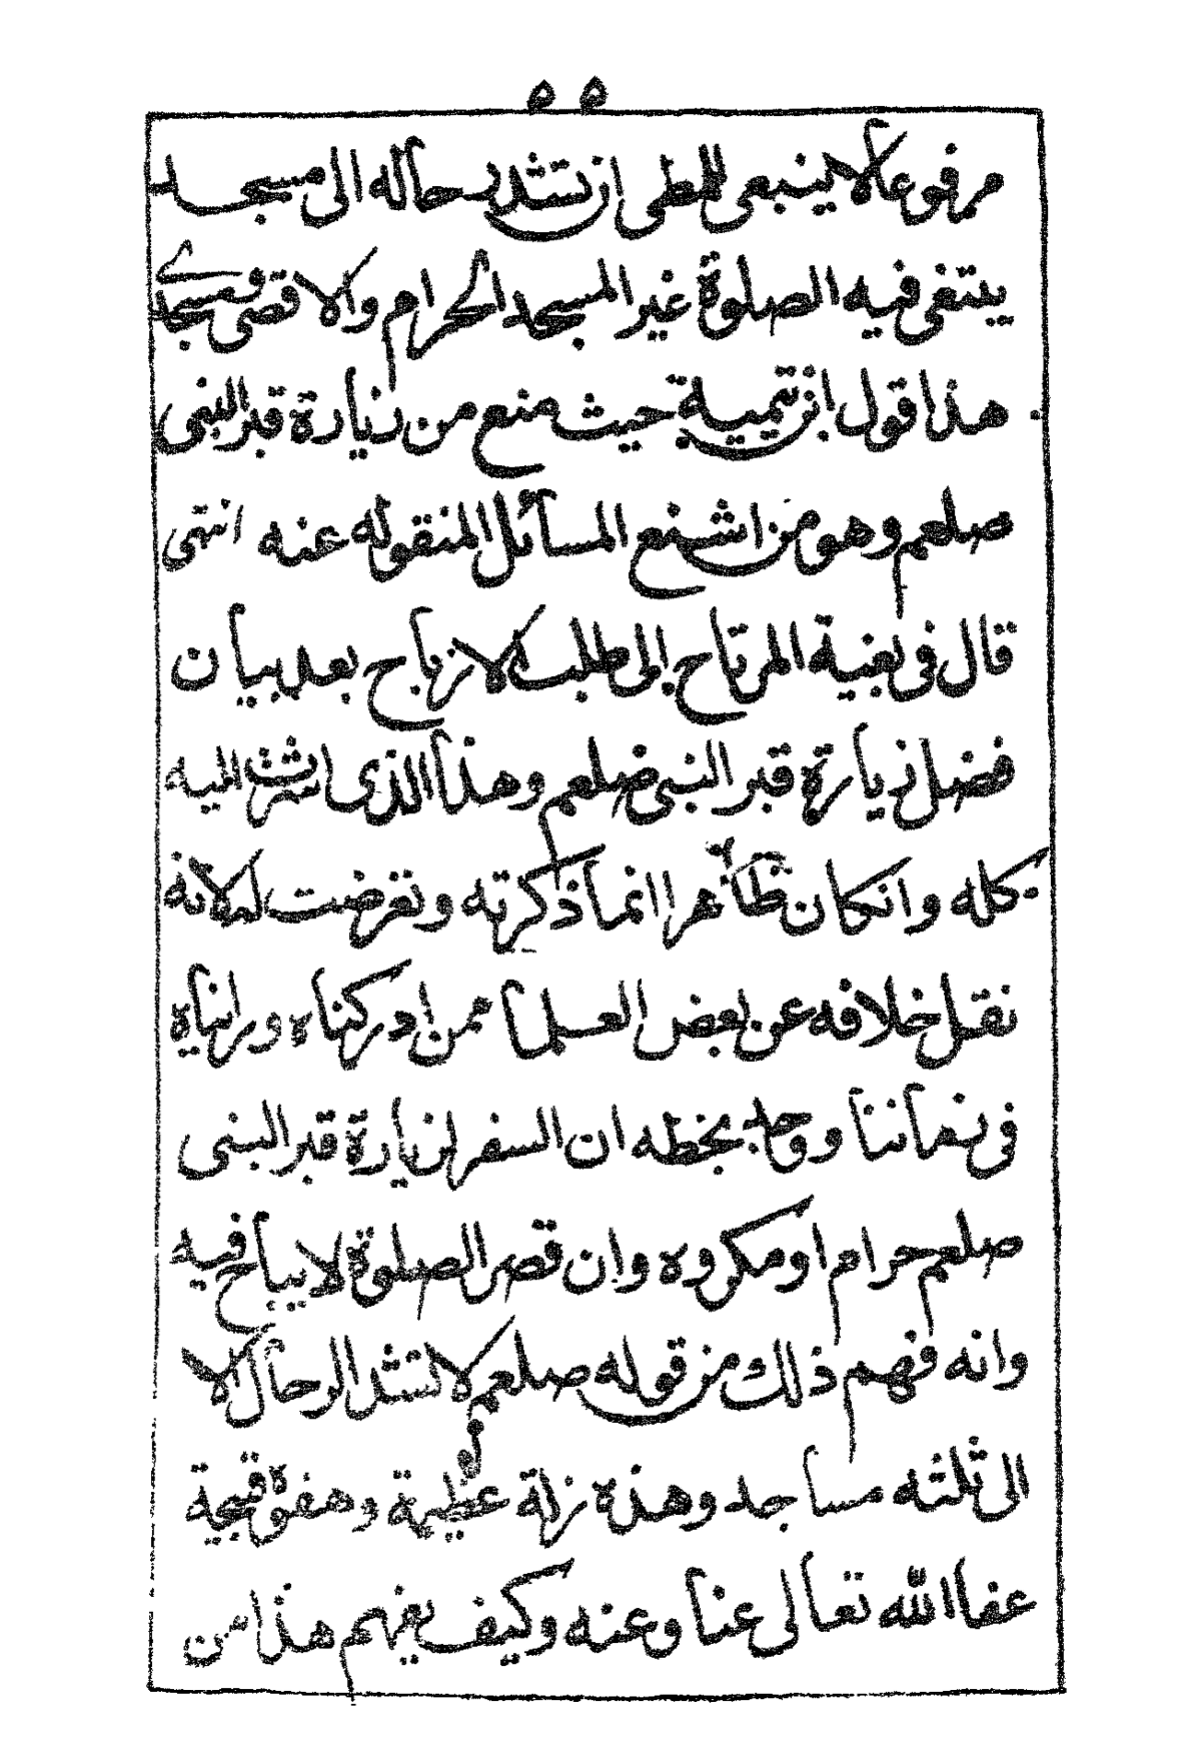 ٥٥
مرفوعا لا ينبغى للمطى ان تشد رحاله الى مسجد
يبتغى فيه الصلوة غير المسجد الحرام والاقصى ومسجدى
هذا قول ابن تيمية حيث منع من زيارة قبر النبى
صلعم وهو من اشنع المسائل المنقوله عنه انتهى
قال فى بغية المرتاح الى طلب الارباح بعد بيان
فضل زيارة قبر النبى صلعم وهذا الذى اشرت اليه
كله وانكان ظاهرا انما ذكرته وتعرضت له لانه
نقل خلافه عن بعض العلما ممن ادركناه ورايناه
فى زماننا ووجد بخطه ان السفر لزيارة قبر النبى
صلعم حرام او مكروه وان قصر الصلوة لا يباح فيه
وانه فهم ذلك من قوله صلعم لا تشد الرحال الا
الى ثلثه مساجد وهذه زلة عظيمة وهفوة قبيحة
عفا الله تعالى عنا وعنه وكيف يفهم هذا من